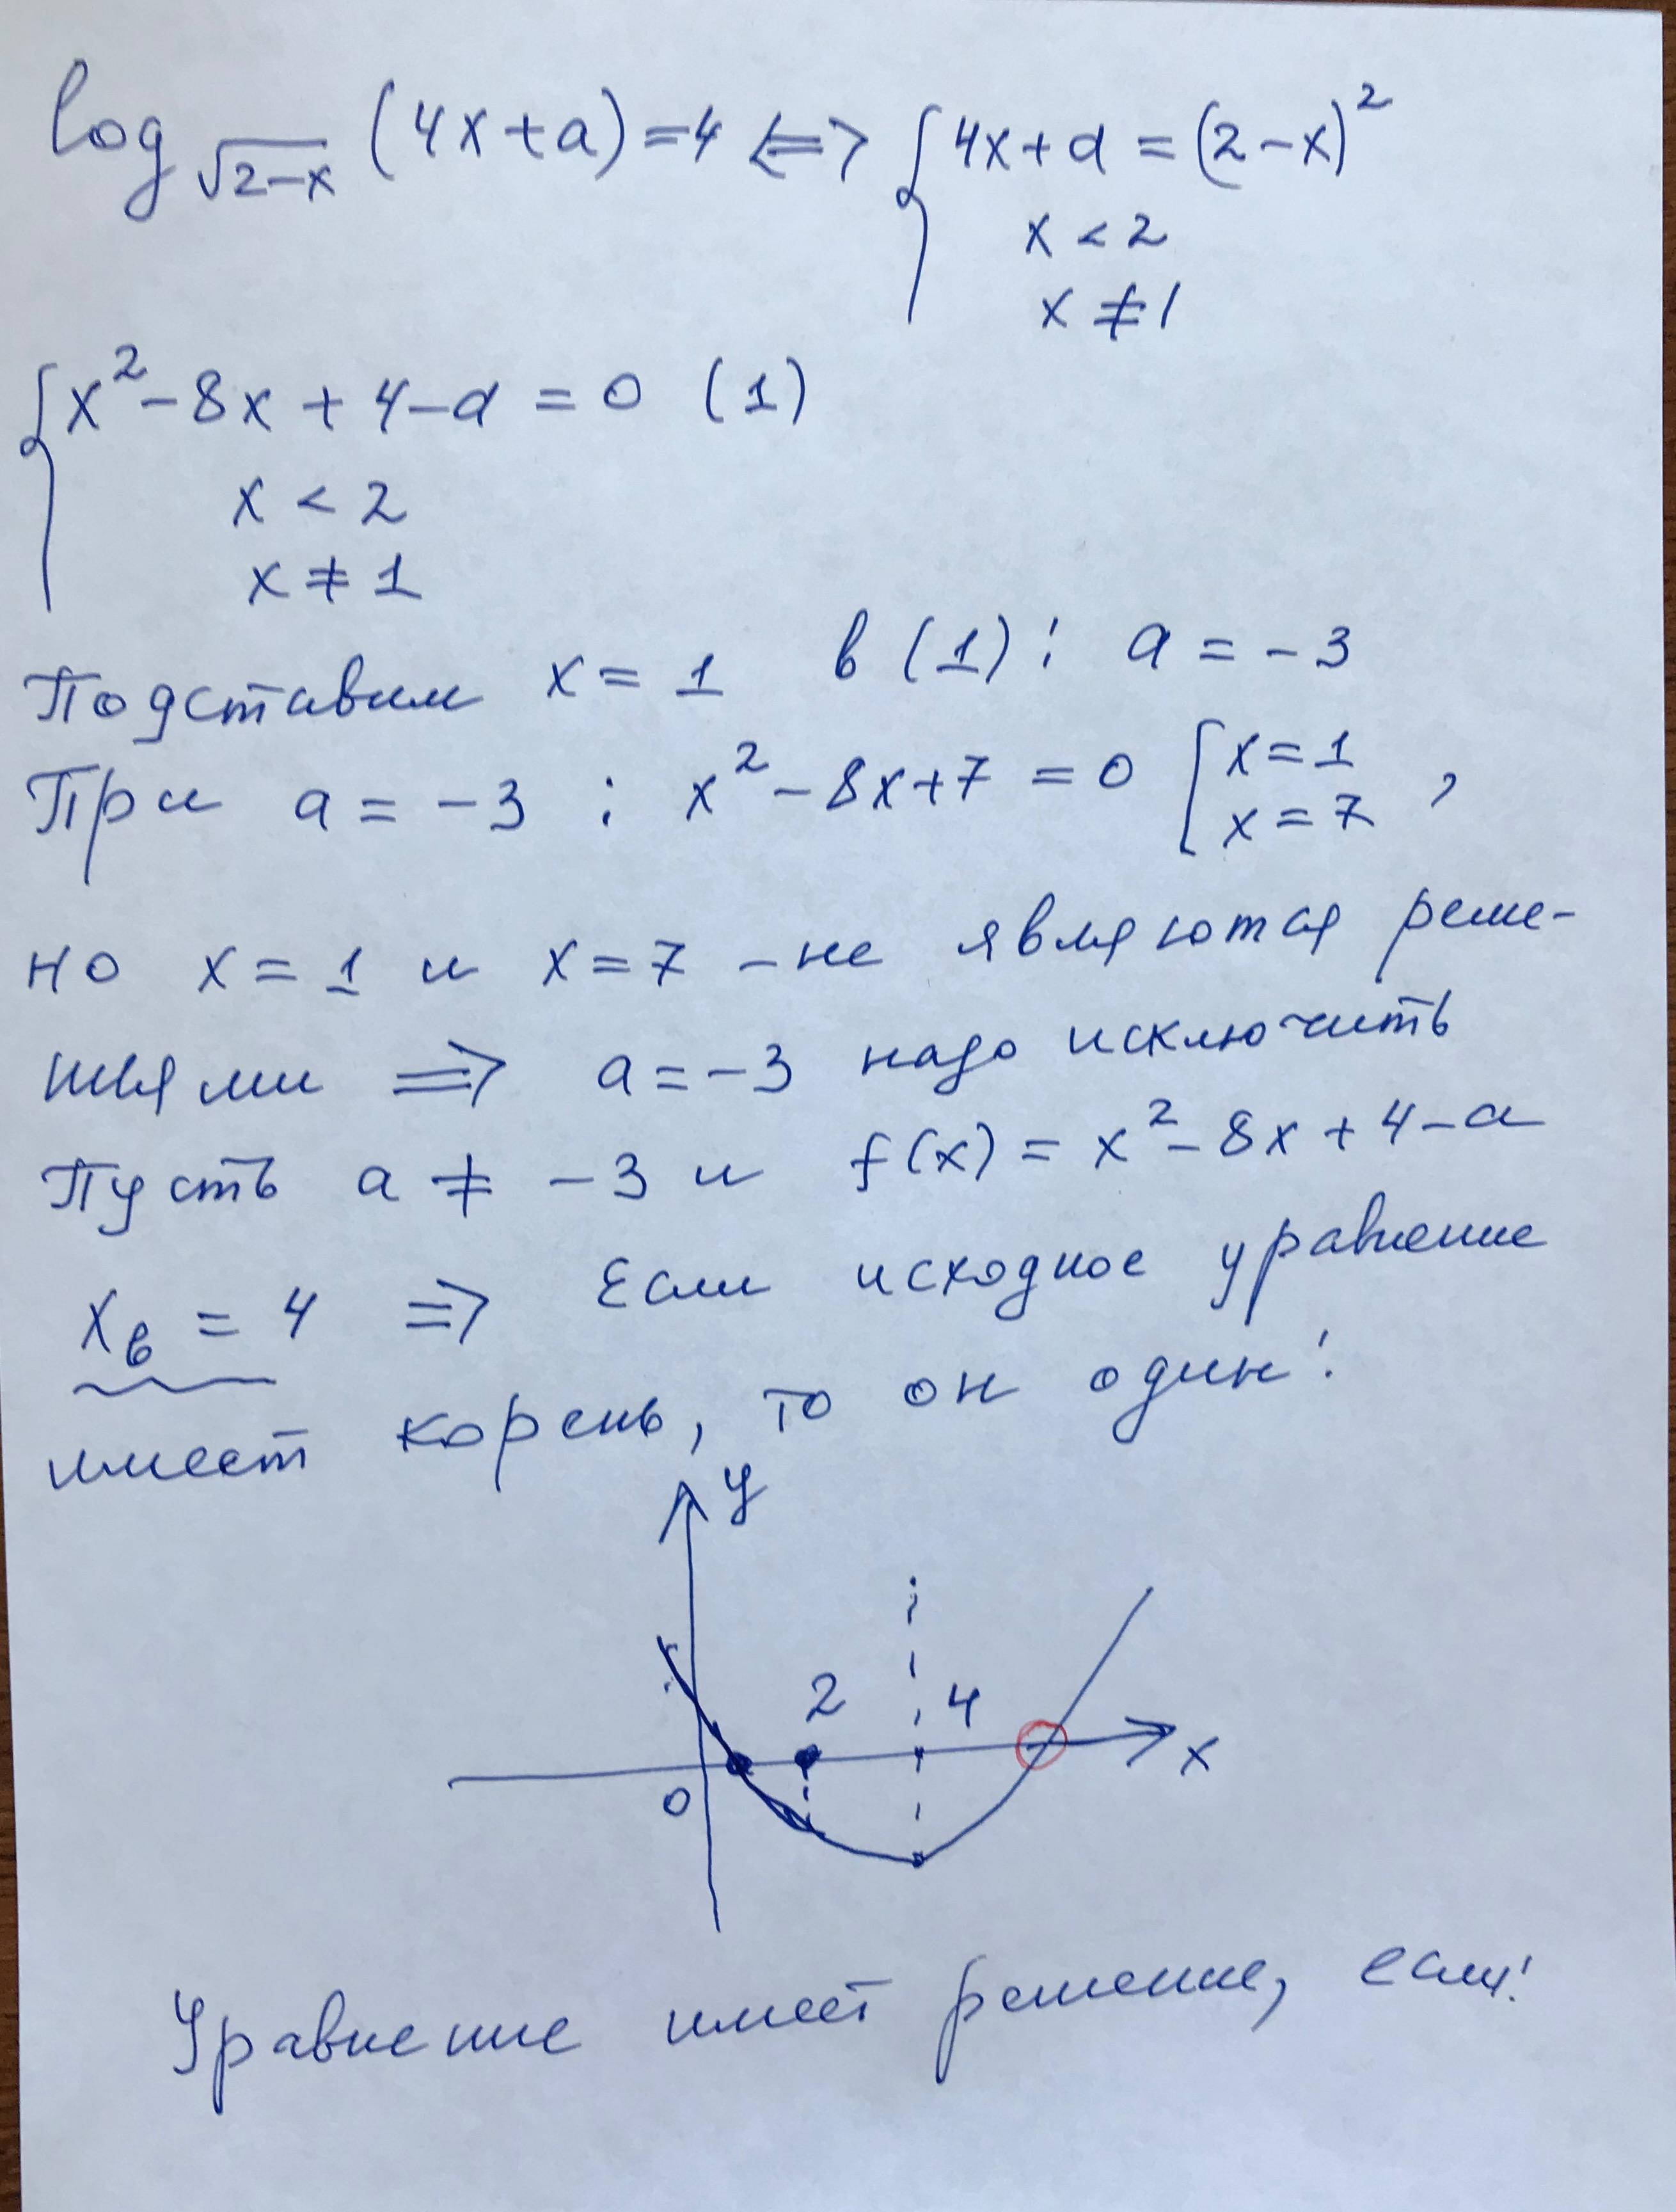 log√(2-x) (4x+a)=4 <=> { 4x+a = (2-x)²
x < 2
x ≠ 1
{ x² - 8x + 4 - a = 0 (1)
x < 2
x ≠ 1
Подставим x = 1 в (1): a = -3
При a = -3 : x² - 8x + 7 = 0 [ x = 1
x = 7 ,
но x = 1 и x = 7 - не являются реше-
ниями => a = -3 надо исключить
Пусть a ≠ -3 и f(x) = x² - 8x + 4 - a
xв = 4 => Если исходное уравнение
имеет корень, то он один!
y
2 4
x
0
Уравнение имеет решение, если: